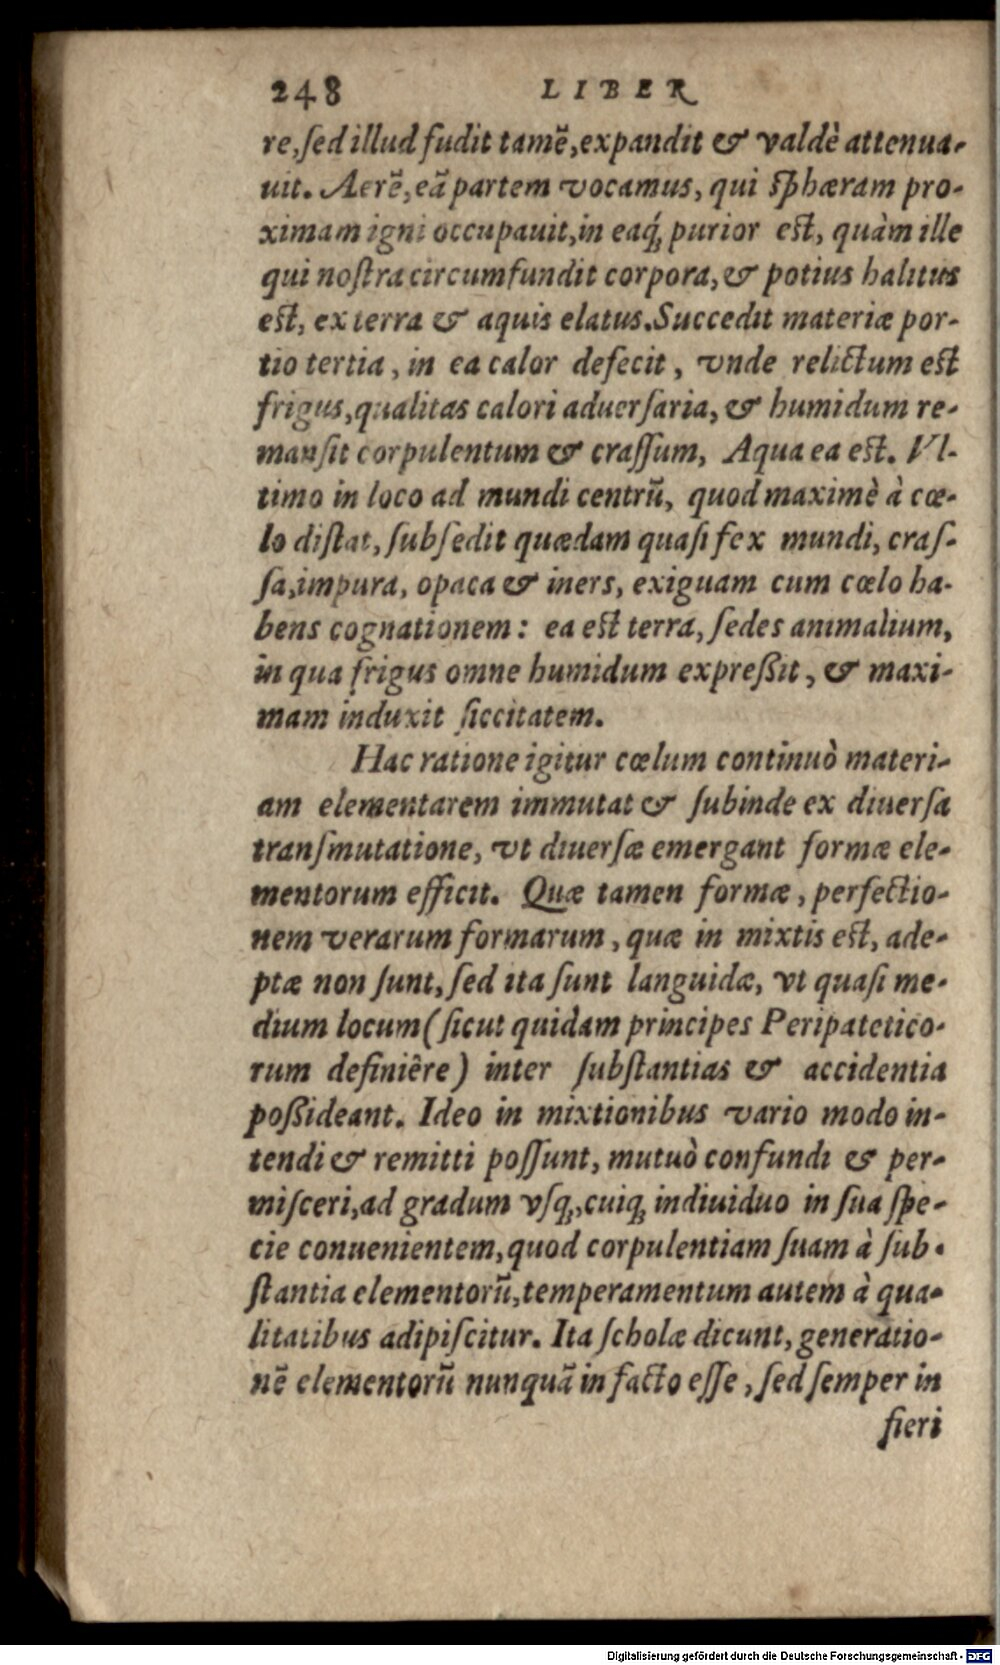 248 LIBER
re, ſed illud fudit tamē, expandit & valdè attenua-
uit. Aerē, eā partem vocamus, qui ſphæram pro-
ximam igni occupauit, in eaq́; purior eſt, quàm ille
qui noſtra circumfundit corpora, & potius halitus
eſt, ex terra & aquis elatus. Succedit materiæ por-
tio tertia, in ea calor defecit, vnde relictum eſt
frigus, qualitas calori aduerſaria, & humidum re-
manſit corpulentum & craſſum, Aqua ea eſt. Vl-
timo in loco ad mundi centrū, quod maximè à cœ-
lo diſtat, ſubſedit quædam quaſi fex mundi, craſ-
ſa, impura, opaca & iners, exiguam cum cœlo ha-
bens cognationem: ea eſt terra, ſedes animalium,
in qua frigus omne humidum expreßit, & maxi-
mam induxit ſiccitatem.
Hac ratione igitur cœlum continuò materi-
am elementarem immutat & ſubinde ex diuerſa
tranſmutatione, vt diuerſæ emergant formæ ele-
mentorum efficit. Quæ tamen formæ, perfectio-
nem verarum formarum, quæ in mixtis eſt, ade-
ptæ non ſunt, ſed ita ſunt languidæ, vt quaſi me-
dium locum (ſicut quidam principes Peripatetico-
rum definiêre) inter ſubſtantias & accidentia
poßideant. Ideo in mixtionibus vario modo in-
tendi & remitti poſſunt, mutuò confundi & per-
miſceri, ad gradum vſq;, cuiq; indiuiduo in ſua ſpe-
cie conuenientem, quod corpulentiam ſuam à ſub-
ſtantia elementorū, temperamentum autem à qua-
litatibus adipiſcitur. Ita ſcholæ dicunt, generatio-
nē elementorū nunquā in facto eſſe, ſed ſemper in
fieri
Digitalisierung gefördert durch die Deutsche Forschungsgemeinschaft - DFG